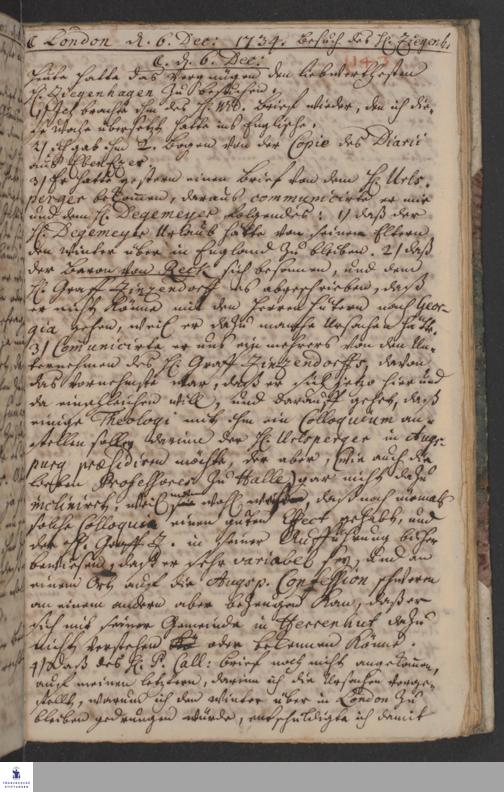 ☾ London d. 6. Dec: 1734. Besuch des H. Ziegenh.
☾ d. 6. Dec:
Heute hatte das Vergnügen den liebwerthesten
H. Ziegenhagen zu besuchen.
1) Jhm des H. Brief wieder, den ich
übersetzt hatte ins Englische.
2) ich gab ihm 2. Bogen von der Copie des Diarii
aus Ebenezer.
3) Er hatte gestern einen Brief von dem H. Urls-
perger bekommen, daraus communicirte er mir
und dem H. Degemeyer folgendes: 1) daß der
H. Degemeyer Urlaub hätte von seinen Eltern
den Winter über in England zu bleiben. 2) daß
der Baron von Reck sich besonnen, und dem
H. Graff Zinzendorff es abgeschrieben, daß
er nicht könne mit den Herren Hutern nach Geor-
gia gehen, weil er dazu manche Ursachen hätte.
3) Communicirte er uns ein mehrers von dem Un-
ternehmen des H. Graff Zinzendorffs, davon
das vornehmste war, daß er sich jetzo hier und
da einschleichen will, und darauf gehet, daß
einige Theologi mit ihm ein Colloquium an-
stellen sollen, darinn der H. Urlsperger in Augs-
purg præsidiren möchte, der aber, (wie auch die
lieben Professores zu Halle) gar nicht dazu
inclinirt, weil man wohl, daß noch niemals
solche Colloquia einen guten Effect gehabt, und
der H. Graff Z. in seiner Aufführung bisher
bewiesen, daß er sehr variabel sey, und an
einem Ort auf die Augsp. Confession schweren
an einem andern aber bezeugen kan, daß er
sich mit seiner Gemeinde in Herrenhut dazu
nicht verstehen oder bekennen könne.
4) daß des H. P. Call: Brief noch nicht angekommen,
auf meinen letztern, darinn ich die Ursachen vorge-
stellt, warum ich den Winter über in London zu
bleiben gedrungen würde, entschuldigte ich damit
FRANCKESCHE
STIFTUNGEN